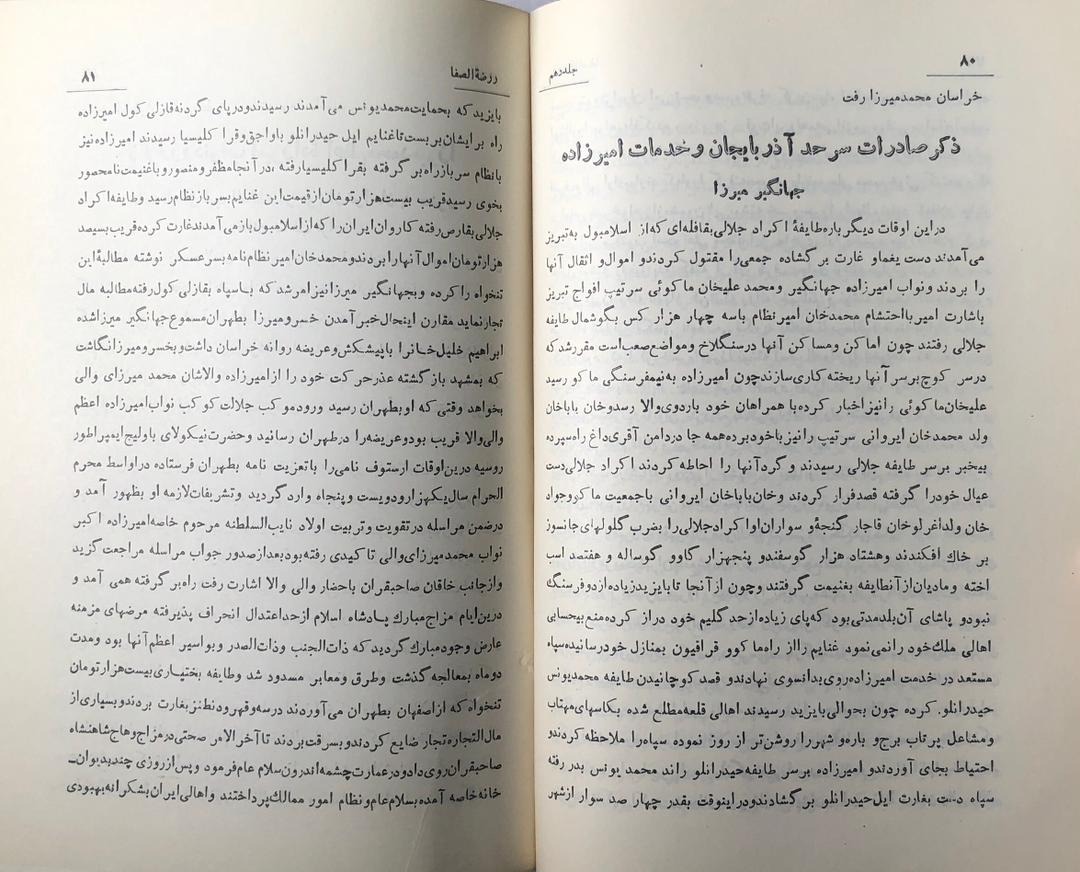 ۸۰
جلددهم
خراسان محمدمیرزا رفت
ذکر صادرات سرحد آذربایجان و خدمات امیرزاده
جهانگیر میرزا
دراین اوقات دیگر باره طایفهٔ اکراد جلالی بقافله‌ای که از اسلامبول به تبریز
می‌آمدند دست یغما و غارت برگشاده جمعی را مقتول کردند و اموال و اثقال آنها
را بردند و نواب امیرزاده جهانگیر و محمد علیخان ماکوئی سرتیپ افواج تبریز
باشارت امیر با احتشام محمدخان امیرنظام باسه چهار هزار کس بگوشمال طایفه
جلالی رفتند چون اماکن ومساکن آنها درسنگلاخ ومواضع صعب است مقررشد که
درسر کوچ برسر آنها ریخته کاری سازند چون امیرزاده به نیمفرسنگی ماکو رسید
علیخان ماکوئی را نیز اخبار کرده با همراهان خود باردوی والا رسد و خان باباخان
ولد محمدخان ایروانی سرتیپ را نیز باخود برده همه جا دردامن آقری داغ راه سپرده
بیخبر برسر طایفه جلالی رسیدند و گرد آنها را احاطه کردند اکراد جلالی دست
عیال خود را گرفته قصد فرار کردند و خان باباخان ایروانی باجمعیت ماکو و جواد
خان ولد اغرلوخان قاجار گنجهٔ و سواران او اکراد جلالی را بضرب گلولهای جانسوز
بر خاک افکندند وهشتاد هزار گوسفند و پنجهزار گاو و گوساله و هفتصد اسب
اخته ومادیان از آنطایفه بغنیمت گرفتند وچون از آنجا تا بایزید زیاده از دو فرسنگ
نبود و پاشای آن بلد مدتی بود که پای زیاده از حد گلیم خود دراز کرده منع بیحسابی
اهالی ملک خود را نمی نمود غنایم را از راه ماکو و قرافیون بمنازل خود رسانیده سپاه
مستعد در خدمت امیرزاده روی بدانسوی نهادند و قصد کوچانیدن طایفه محمدیونس
حیدرانلو کرده چون بحوالی بایزید رسیدند اهالی قلعه مطلع شده بکاسهای مهتاب
ومشاعل پرتاب برج و باره و شهر را روشن تر از روز نموده سپاه را ملاحظه کردند و
احتیاط بجای آوردند و امیرزاده برسر طایفه حیدرانلو راند محمد یونس بدر رفته
سپاه دست بغارت ایل حیدرانلو برگشادند و دراینوقت بقدر چهار صد سوار ازشهر
روضةالصفا
۸۱
بایزید که بحمایت محمدیونس می آمدند رسیدند و درپای گردنه قازلی کول امیرزاده
راه برایشان بربست تا غنایم ایل حیدرانلو باواجق وقرا کلیسیا رسیدند امیرزاده نیز
بانظام سرباز راه بر گرفته بقرا کلیسیا رفته ، در آنجا مظفر و منصور و با غنیمت نامحصور
بخوی رسید قریب بیست هزار تومان از قیمت این غنایم بسرباز نظام رسید وطایفه اکراد
جلالی بقارص رفته کاروان ایران را که از اسلامبول باز می آمدند غارت کرده قریب بسیصد
هزار تومان اموال آنها را بردند و محمدخان امیرنظام نامه بسرعسکر نوشته مطالبهٔ این
تنخواه را کرده و بجهانگیر میرزا نیز امر شد که باسپاه بقازلی کول رفته مطالبه مال
تجار نماید مقارن اینحال خبر آمدن خسرو میرزا بطهران مسموع جهانگیر میرزا شده
ابراهیم خلیل خانرا باپیشکش و عریضه روانه خراسان داشت و بخسرو میرزا نگاشت
که بمشهد باز گشته عذر حرکت خود را از امیرزاده والاشان محمد میرزای والی
بخواهد وقتی که او بطهران رسید ورود موکب جلالت کوکب نواب امیرزاده اعظم
والی والا قریب بود و عریضه را درطهران رسانید و حضرت نیکولای باولیج ایمپراطور
روسیه درین اوقات ارستوف نامی را با تعزیت نامه بطهران فرستاده دراواسط محرم
الحرام سال یکهزار و دویست و پنجاه وارد گردید و تشریفات لازمه او بظهور آمد و
درضمن مراسله در تقویت و تربیت اولاد نایب السلطنه مرحوم خاصه امیرزاده اکبر
نواب محمد میرزای والی تاکیدی رفته بود بعد از صدور جواب مراسله مراجعت گزید
و از جانب خاقان صاحبقران باحضار والی والا اشارت رفت راه بر گرفته همی آمد و
درین ایام مزاج مبارک پادشاه اسلام ازحد اعتدال انحراف پذیرفته مرضهای مزمنه
عارض وجود مبارک گردید که ذات الجنب وذات الصدر و بواسیر اعظم آنها بود ومدت
دوماه بمعالجه گذشت وطرق و معابر مسدود شد وطایفه بختیاری بیست هزار تومان
تنخواه که از اصفهان بطهران می آوردند درسه و قهرود نطنز بغارت بردند و بسیاری از
مال التجاره تجار ضایع کردند و بسرقت بردند تا آخر الامر صحتی در مزاج وهاج شاهنشاه
صاحبقران روی داد و درعمارت چشمه اندرون سلام عام فرمود و پس از روزی چند بدیوان
خانه خاصه آمده بسلام عام و نظام امور ممالک پرداختند و اهالی ایران بشکرانه بهبودی